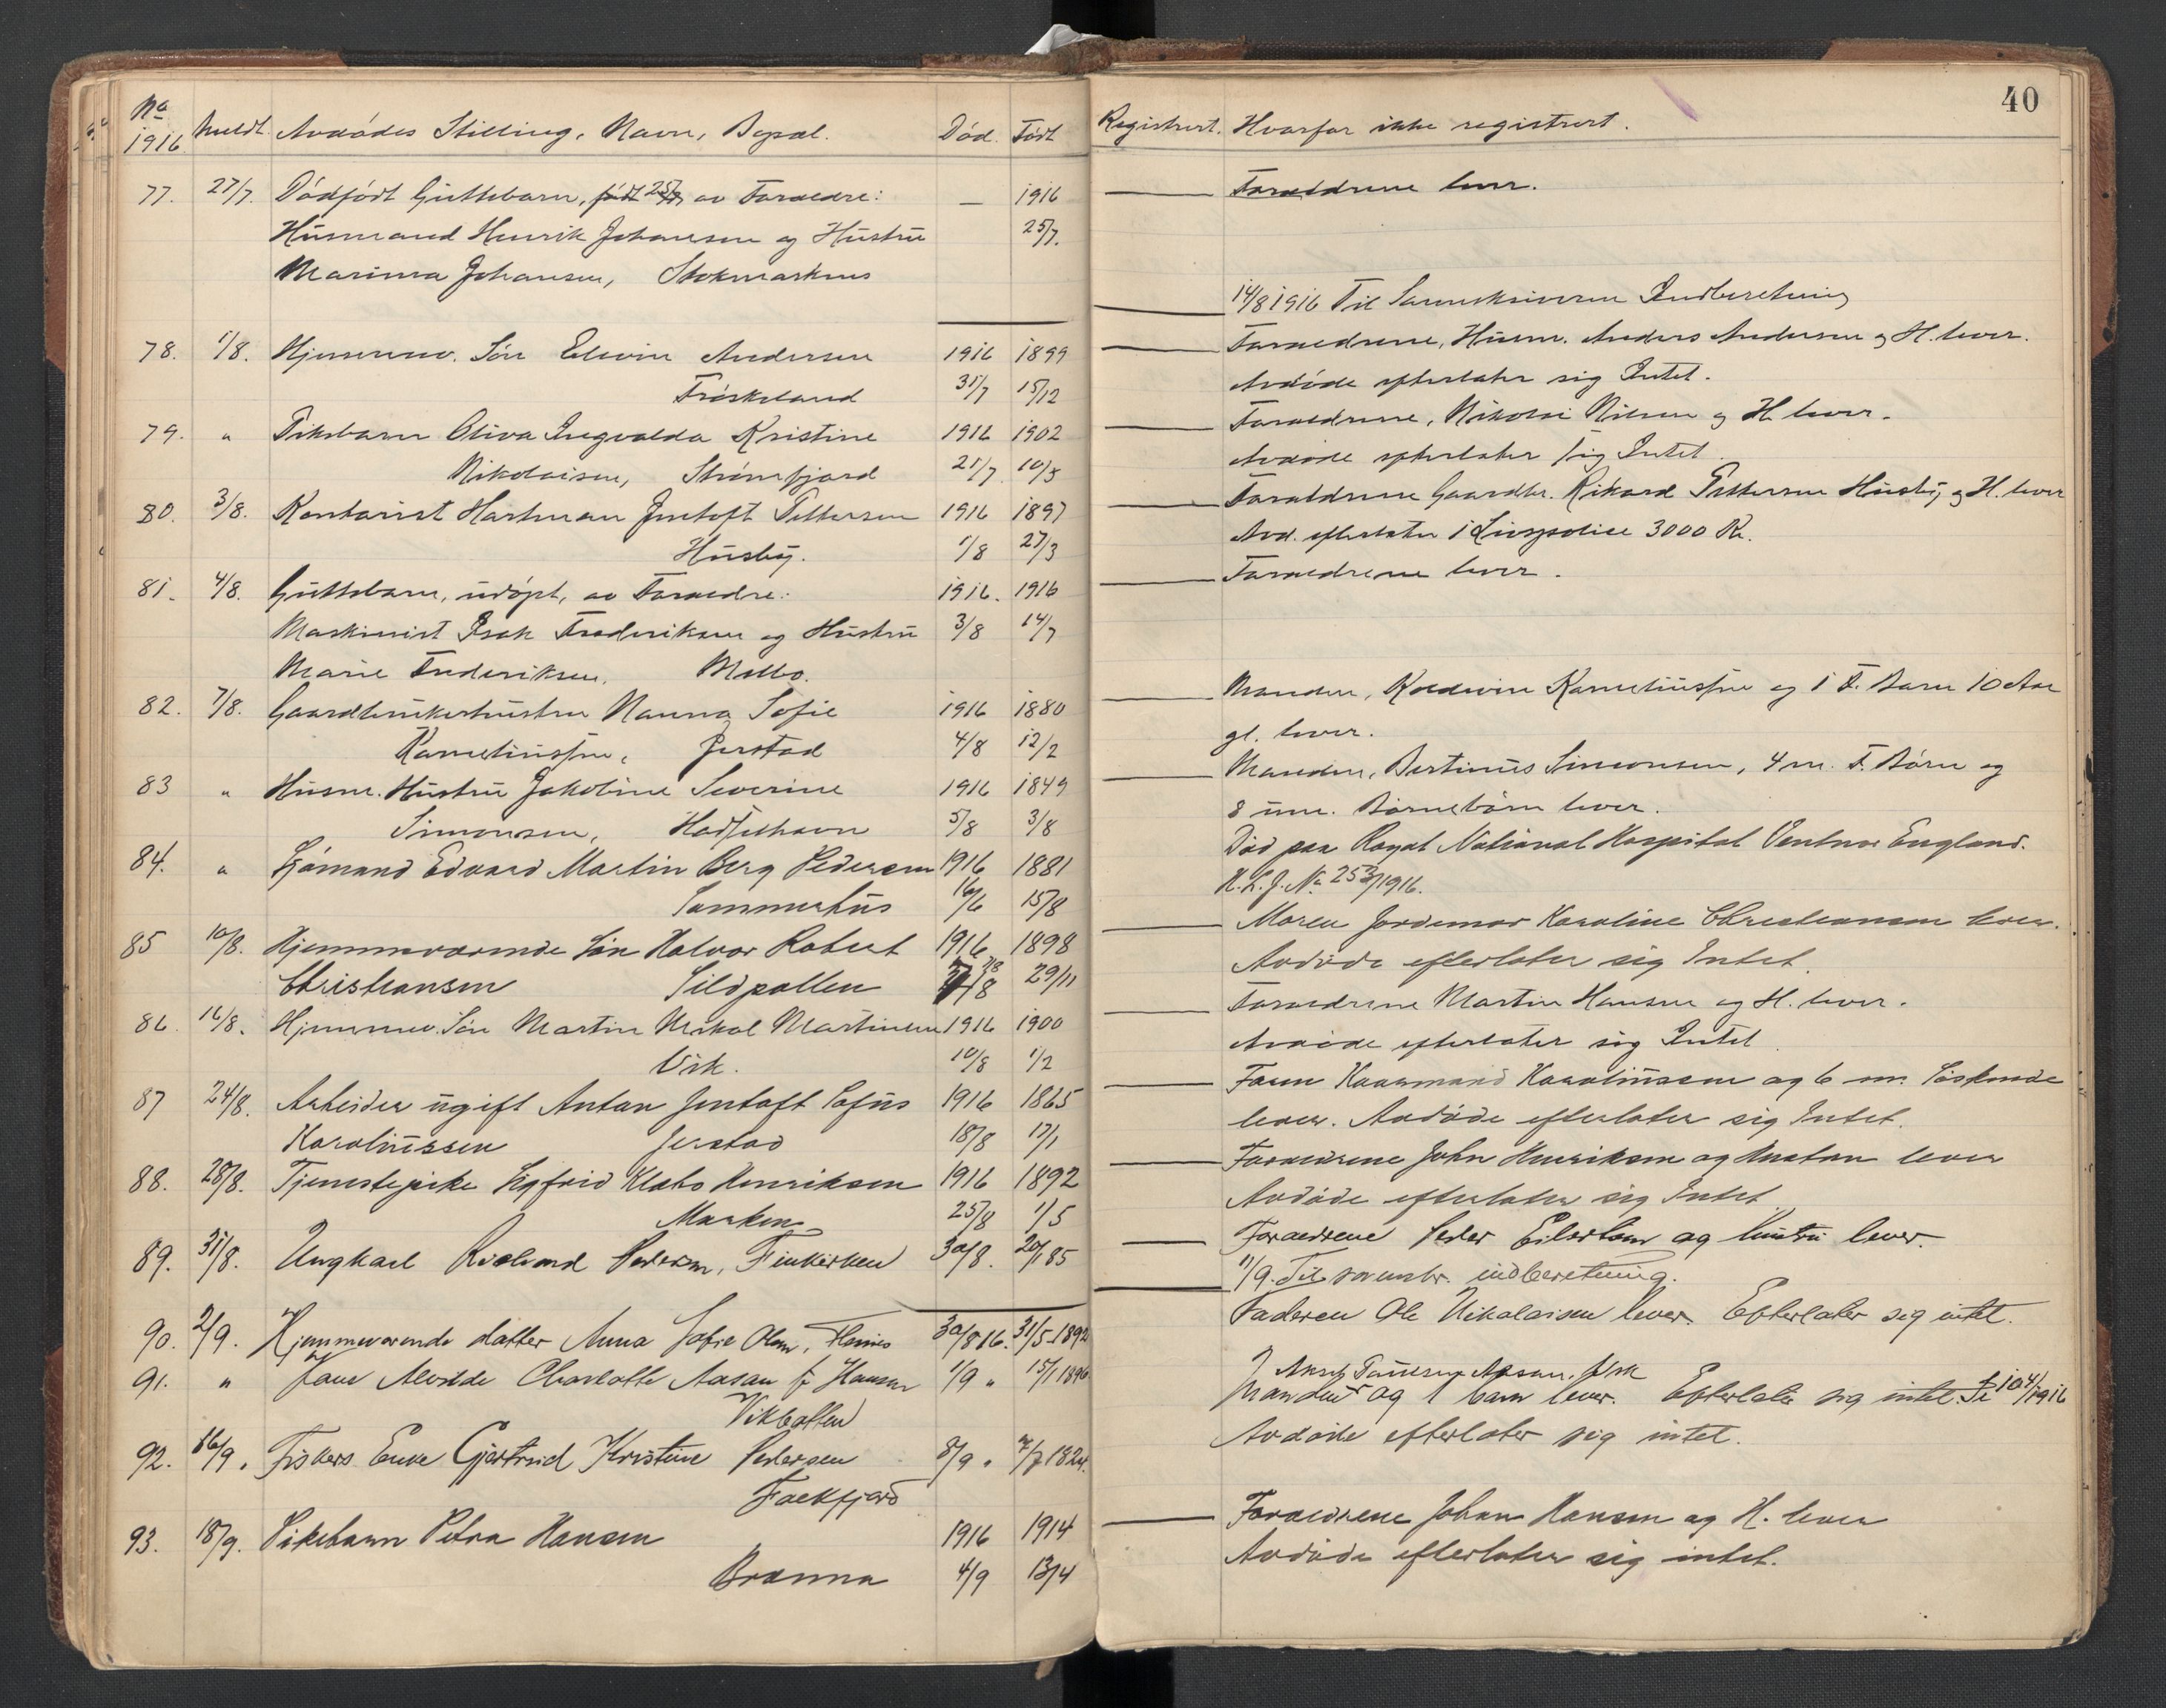 No 1916 Meldt. Avdödes Stilling, Navn, Bopæl. Död. Födt
77. 27/7. Dödfödt Guttebarn, födt 25/7 av Forældre: — 1916
Husmand Henrik Johansen og Hustru 25/7.
Marina Johansen, Stokmarknes
78. 1/8. Hjemmev. Sön Edwin Andersen 1916 1899
Fröskeland 31/7 15/12
79. " Pikebarn Oliva Ingvalda Kristine 1916 1902
Nikolaisen, Strömfjord 21/7 10/5
80. 3/8. Kontorist Hartman Jentoft Pettersen 1916 1897
Husby. 1/8 27/3
81. 4/8. Guttebarn, udöpt, av Forældre: 1916. 1916
Maskinist Isak Frederiksen og Hustru 3/8 14/7
Marie Frederiksen, Melbo.
82. 7/8. Gaardbrukerhustru Nanna Sofie 1916 1880
Korneliussen, Jerstad 4/8 12/2
83 " Husm. Hustru Jakobine Severine 1916 1849
Simonsen, Hadselhavn 5/8 3/8
84. " Sjömand Edvard Martin Berg Pedersen 1916 1881
Sommerhus 16/6 15/8
85 10/8. Hjemmeværende Sön Halvor Robert 1916 1898
Christiansen Sildpollen 7/8 29/11
86. 16/8. Hjemmev. Sön Martin Mikal Martinsen 1916 1900
Vik. 10/8 1/2
87 24/8. Arbeider ugift Anton Jentoft Sofus 1916 1865
Karolinssen Jerstad 18/8 17/1
88. 28/8. Tjenestepike Sigfrid Klabo Henriksen 1916 1892
Marken 25/8 1/5
89. 31/8. Ungkarl Richard Pedersen, Finkirken 30/8. 20/1 85
90. 2/9. Hjemmeværende datter Anna Sofie Olsen, Flesnes 30/8 16. 31/5 1892
91. " Kone Alvilde Charlotte Aasan f. Hansen 1/9 " 15/1 1896
Vikbotten
92. 16/9. Fiskers Enke Gjertrud Kristine Pedersen 8/9 " 7/7 1824.
Fækfjord
93. 18/9. Pikebarn Petra Hansen 1916 1914
Brænna 4/9 13/4
40
Registrert. Hvorfor ikke registrert.
Forældrene lever.
14/8 1916 Til Sorenskriveren Indberetning
Forældrene, Husm. Anders Andersen og H. lever.
Avdöde efterlater sig Intet.
Forældrene, Nikolai Nilsen og H. lever.
Avdöde efterlater sig Intet.
Forældrene Gaardbr. Rikard Pettersen Husby og H. lever
Avd. efterlater 1 Livspolice 3000 Kr.
Forældrene lever.
Manden, Korneliussen og 1 F. Barn 10 Aar
gl. lever.
Manden, Bertinus Simonsen, 4 m. F. Börn og
8 um. Barnebörn lever.
Död paa Royal National Hospital Ventnor England.
1916.
Moren Jordemor Karoline Christiansen lever.
Avdöde efterlater sig Intet.
Forældrene Martin Hansen og H. lever.
Avdöde efterlater sig Intet.
Karolinssen og 6 m. Söskende
lever. Avdöde efterlater sig Intet.
Forældrene John Henriksen og Hustru lever
Avdöde efterlater sig Intet
Forældrene Peder Eilertsen og hustru lever.
11/9. Til sorenskr. indberetning.
Faderen Ole Nikolaisen lever. Efterlater sig intet.
Manden og 1 barn lever. Efterlater sig intet.
Avdöde efterlater sig intet.
Forældrene Johan Hansen og H. lever
Avdöde efterlater sig intet.